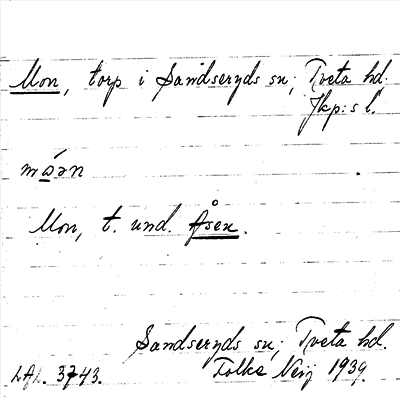 Mon, torp i Sandseryds sn; Tveta hd.
Jkp:s l.
mωən
Mon, t. und. Åsen.
Sandseryds sn; Tveta hd.
LAL. 3743. Folke 1939.